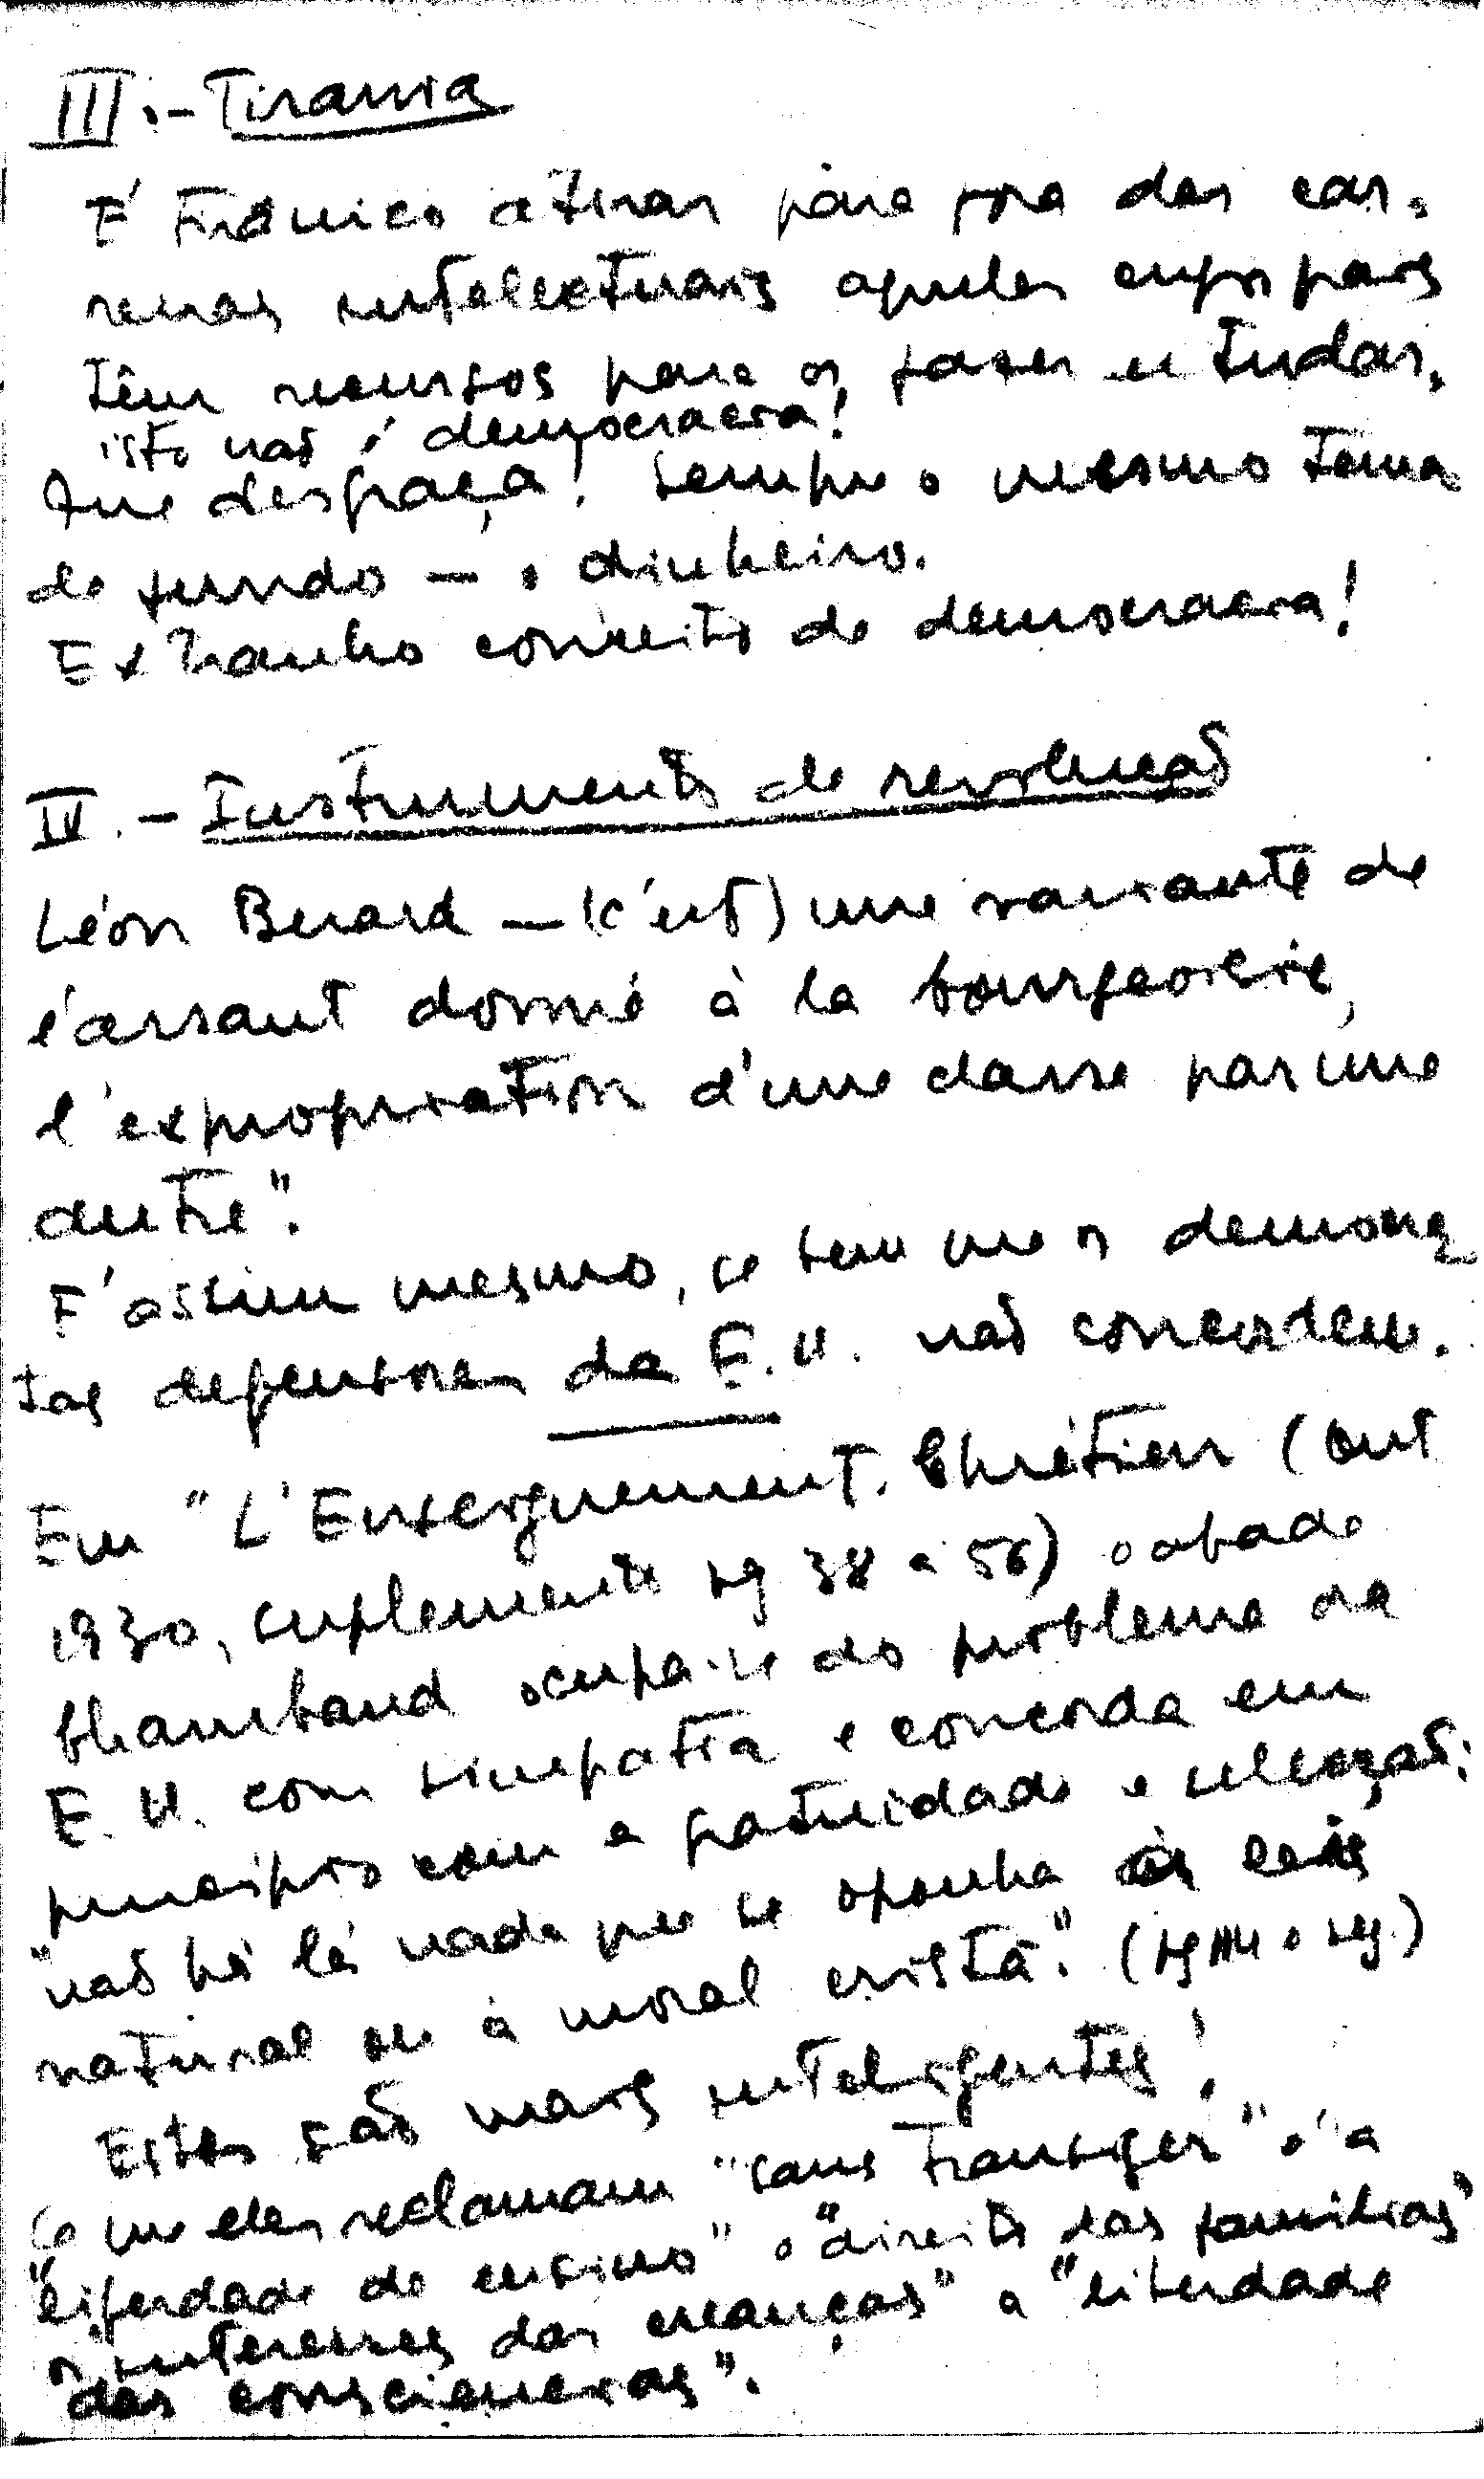 III.- Tirania
É tirânico atirar para fora das car-
reiras intelectuais aqueles cujos pais
têm recursos para os fazer estudar.
isto não é democracia!
Que desgraça! Sempre o mesmo tema
de fundo — o dinheiro.
Extranho conceito de democracia!
IV. - Instrumento de revolução
Léon Berard — (c'est) une variante de
l'assaut donné à la bourgeoisie,
l'expropriation d'une classe par une
autre".
E' assim mesmo, se bem que os democra
tas defensores da E.U. não concordem.
Em "L'Enseignement Chrétien (Out
1930, suplemento pg 38 a 56) o abade
Chambaud ocupa-se do problema da
E.U. com simpatia e concorda em
principio com a gratuidade e selecção;
"não há lá nada que se oponha às leis
natural ou à moral cristã." (pg e seg.)
Estes são mais inteligentes!
O que eles reclamam "sans transiger" é a
"liberdade de ensino" o "direito das familias"
os interesses das creanças" a "liberdade
das consciencias".